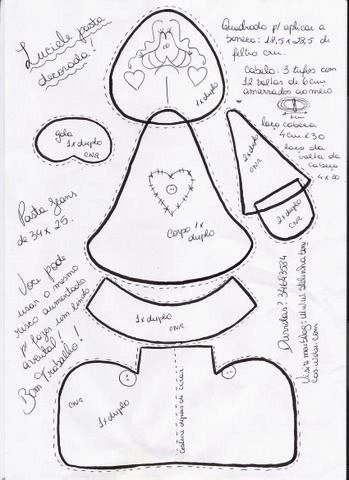 Luciele pasta
decorada!
Quadrado p/ aplicar a
boneca: 18,5 x 28,5 de
feltro cru.
Cabelo: 3 tufos com
12 voltas de 6cm
amarrados ao meio
6cm
laço cabeça
4cm x 30
laço da
volta da
cabeça
4 x 20
1x duplo
gola
1x duplo
CNR
2x duplo
CNR
2x duplo
CNR
Corpo 1x
duplo
Pasta Jeans
de 34 x 25.
Você pode
usar o mesmo
risco aumentado
p/ fazer um lindo
avental!
Bom Trabalho!
1x duplo
CNR
CNR
1x duplo
costura depois de virar
Dúvidas? 34643534
Visite meu blog: